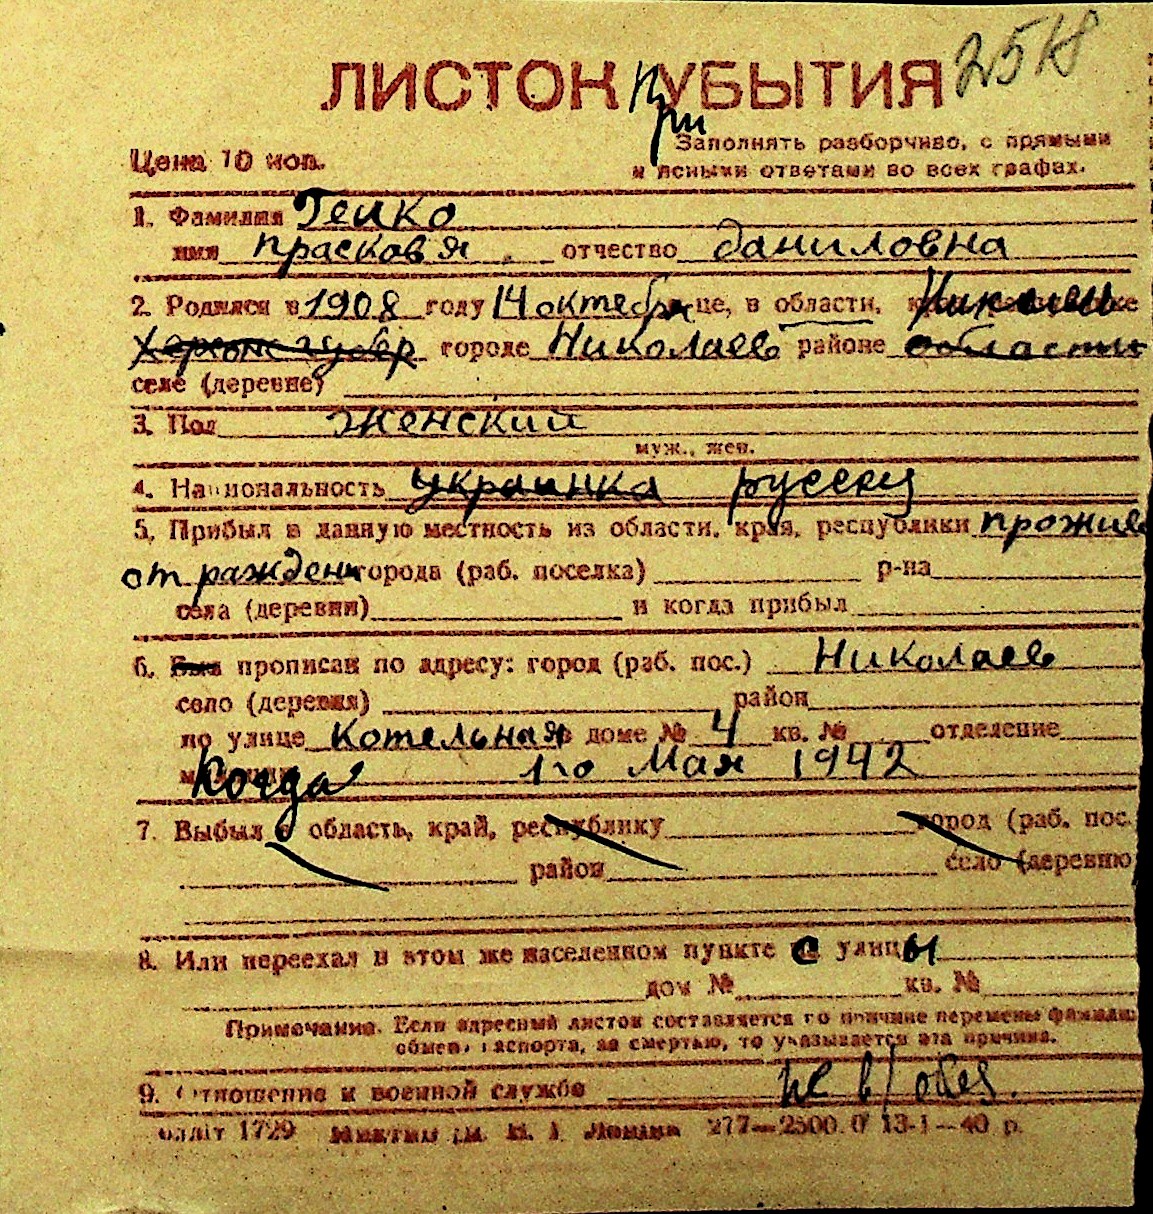 2518
ЛИСТОК При УБЫТИЯ
Заполнять разборчиво, с прямыми
Цена 10 коп.
и ясными ответами во всех графах.
1. Фамилия Гейко
имя прасковя отчество даниловна
2. Родился в 1908 году 14 октебр це, в области, Николаев ке
Херсонс губер городе Николаев районе области
селе (деревне)
3. Пол женский
муж., жен.
4. Национальность украинка русская
5. Прибыл в данную местность из области, края, республики прожив
от раждени города (раб. поселка) р-на
села (деревни) и когда прибыл
6. Был прописан по адресу: город (раб. пос.) Николаев
село (деревня) район
по улице Котельная в доме № 4 кв. № отделение
Когда 1го Мая 1942
7. Выбыл в область, край, республику город (раб. пос.
район село (деревню
8. Или переехал в этом же населенном пункте с улицы
дом № кв. №
Примечание. Если адресный листок составляется по причине перемены фамилии,
обмена паспорта, за смертью, то указывается эта причина.
9. Отношение к военной службе не в/обяз.
облліт 1729 277—2500.0 13-1—40 р.